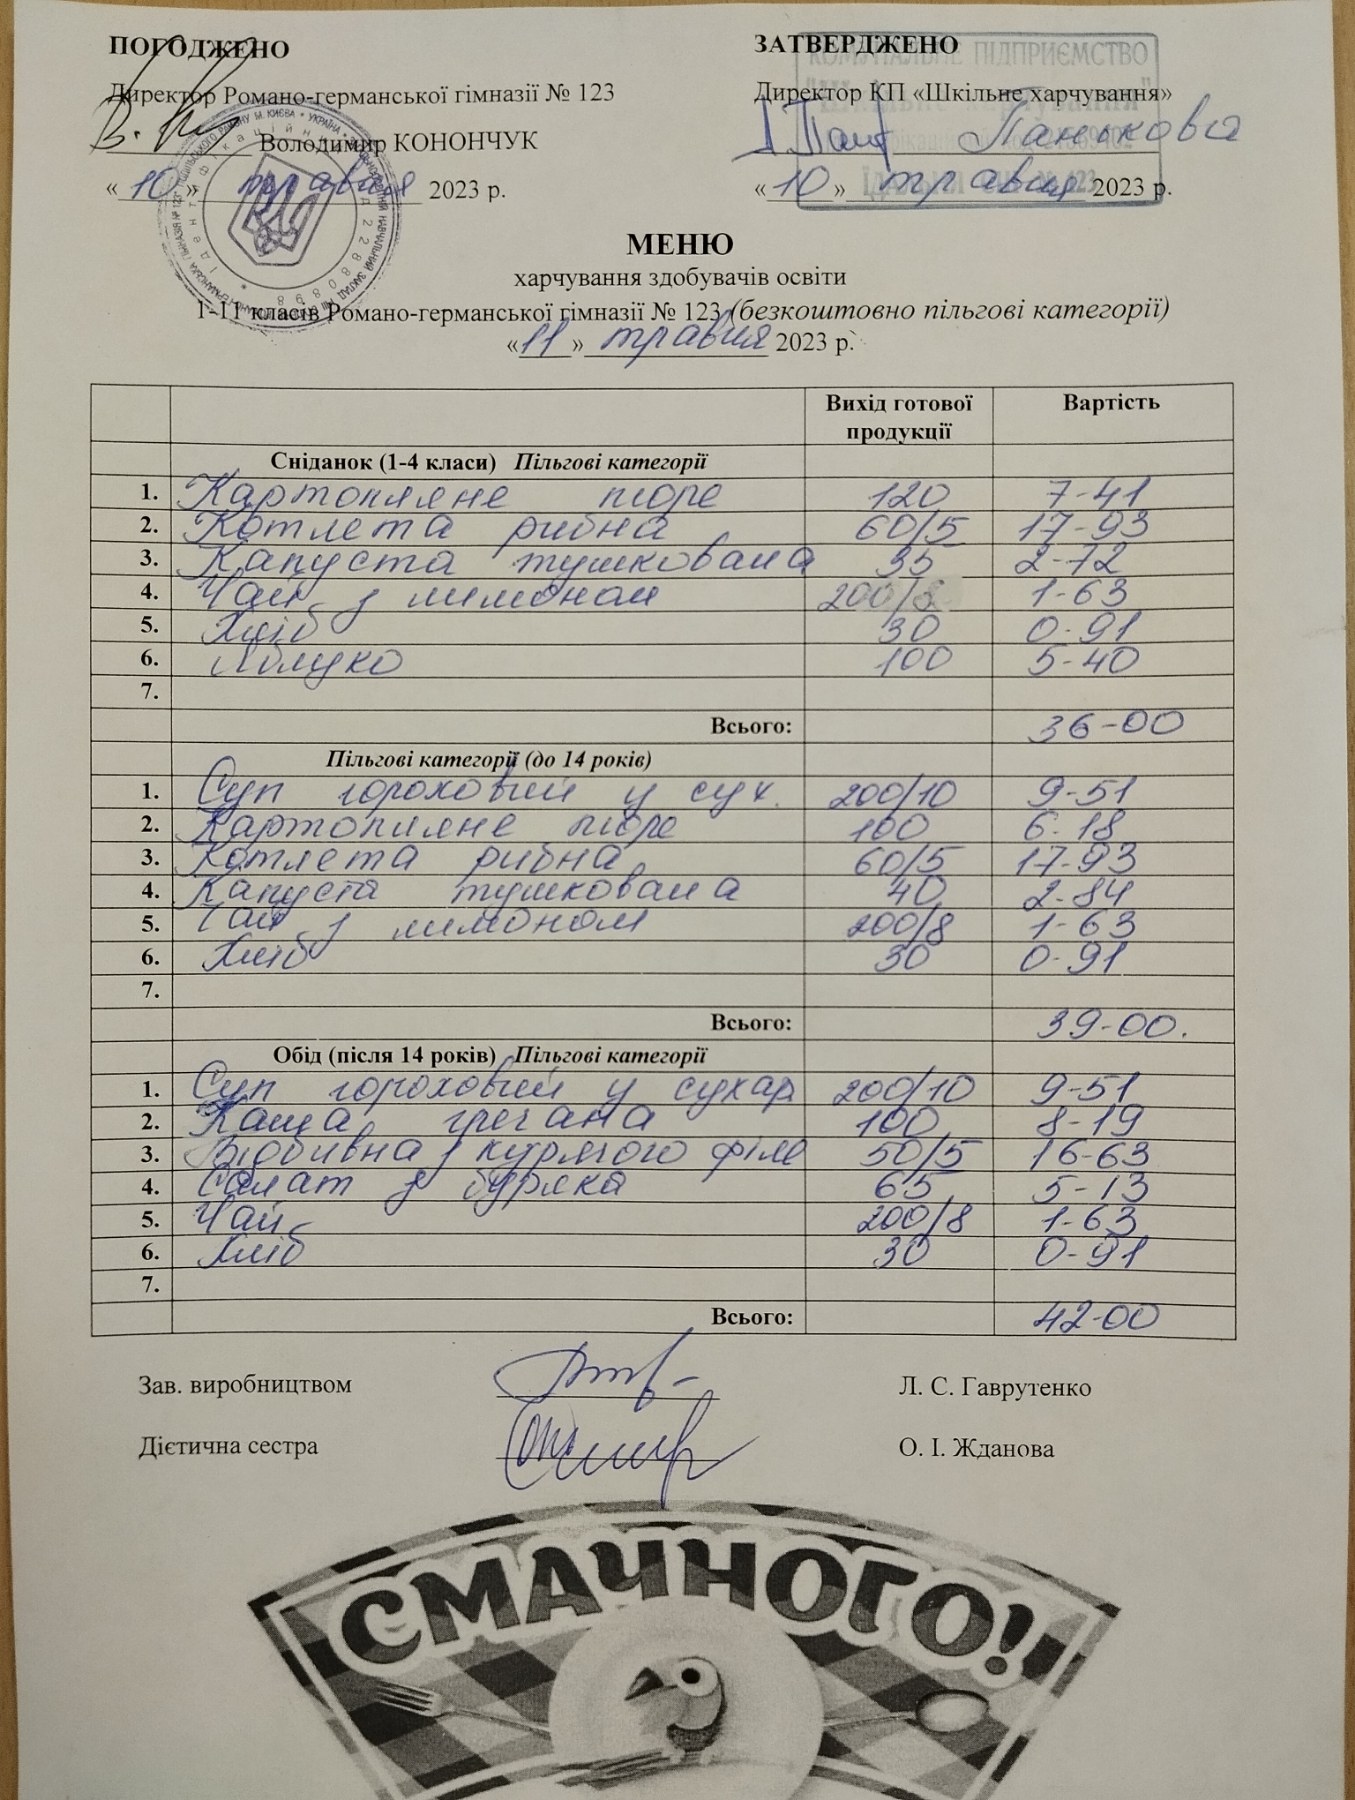 ПОГОДЖЕНО
Директор Романо-германської гімназії № 123
Володимир КОНОНЧУК
« 10 » травня 2023 р.
ЗАТВЕРДЖЕНО
КОМУНАЛЬНЕ ПІДПРИЄМСТВО
Директор КП «Шкільне харчування»
Панькова
« 10 » травня 2023 р.
МЕНЮ
харчування здобувачів освіти
1-11 класів Романо-германської гімназії № 123 (безкоштовно пільгові категорії)
« 11 » травня 2023 р.
Вихід готової продукції Вартість
Сніданок (1-4 класи) Пільгові категорії
1. Картопляне пюре 120 7-41
2. Котлета рибна 60/5 17-93
3. Капуста тушкована 35 2-72
4. Чай з лимоном 200/8 1-63
5. Хліб 30 0-91
6. Яблуко 100 5-40
7.
Всього: 36-00
Пільгові категорії (до 14 років)
1. Суп гороховий у сух. 200/10 9-51
2. Картопляне пюре 100 6-18
3. Котлета рибна 60/5 17-93
4. Капуста тушкована 40 2-84
5. Чай з лимоном 200/8 1-63
6. Хліб 30 0-91
7.
Всього: 39-00.
Обід (після 14 років) Пільгові категорії
1. Суп гороховий у сухар. 200/10 9-51
2. Каша гречана 100 8-19
3. Відбивна з курячого філе 50/5 16-63
4. Салат з буряка 65 5-13
5. Чай 200/8 1-63
6. Хліб 30 0-91
7.
Всього: 42-00
Зав. виробництвом Л. С. Гаврутенко
Дієтична сестра О. І. Жданова
СМАЧНОГО!